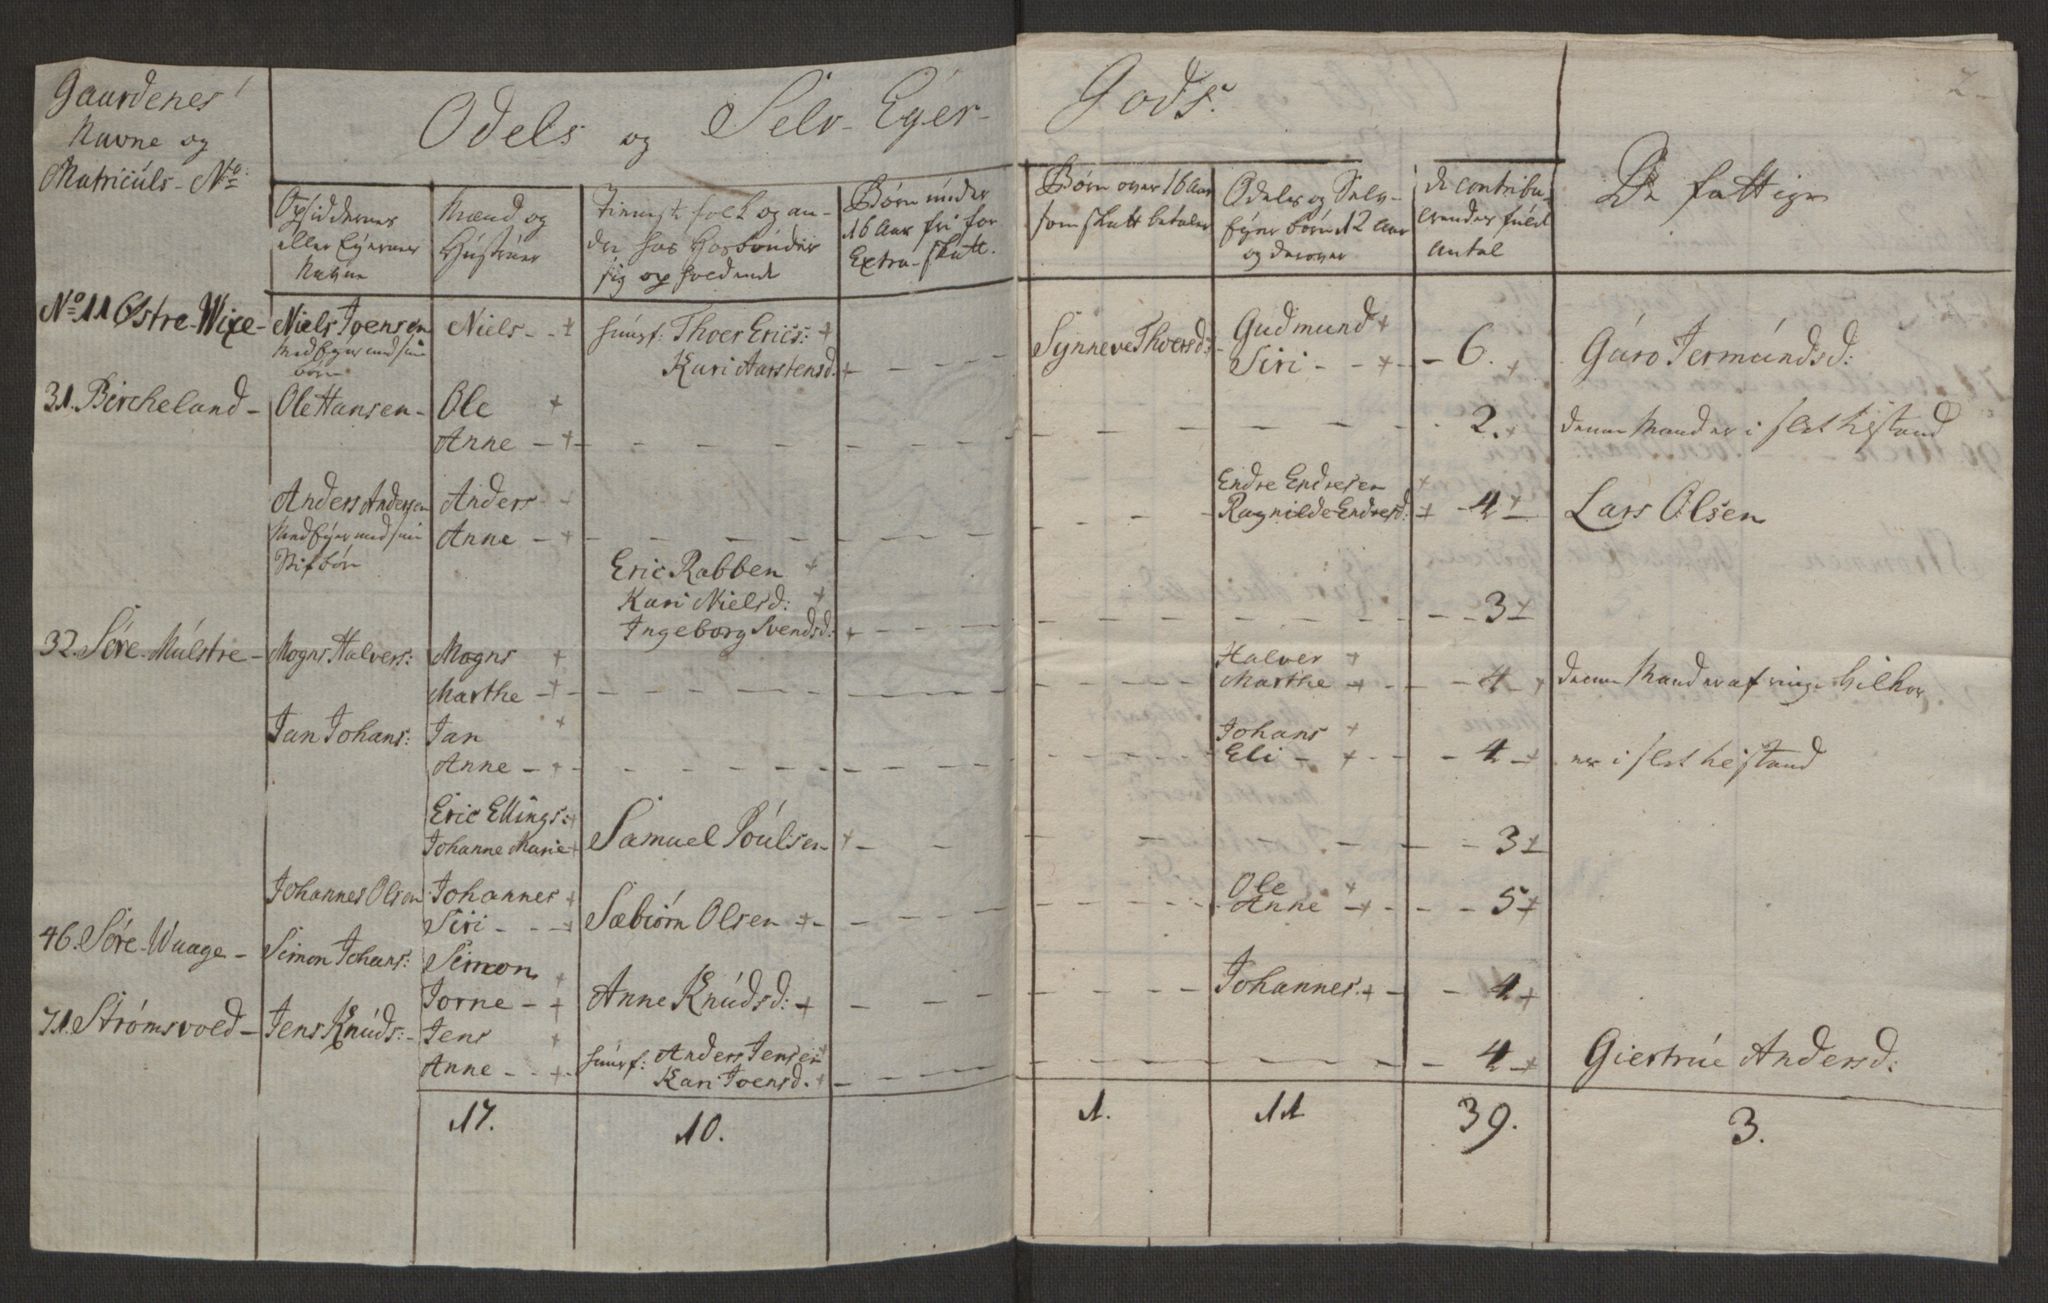 Gaardenes
Navne og
Matriculs-No:
Odels og Selv-Eyer-Gods.
2
Opsiddernes
eller Eyernes
Navne
Mænd og
Hustruer
Tienniste folk og an-
dre hos Hosbonder
sig opholdende
Børn under
16 Aar fri for
Extra-Skatt.
Børn over 16 Aar
som skatt betaler
Odels og Selv-
Eyer børn 12 Aar
og derover
de contribu-
erendes fulde
antal
De fattige
No 11 Østre-Wixe- Niels Joensen Niels - + huusf: Thoer Erics: + Synneve Thoersd: Gudmund +
Med Eyer med sine
børn
Kari Aarstensd. + - - - Siri - - + - 6. + Guro Jermundsd:
31. Bircheland- Ole Hansen- Ole +
Anne - + - - - 2. + denne Mand er i slet tilstand
Anders Andersen Anders - - Endre Endresen +
Med Eyer med sine
Stifbørn
Anne - + - - - Ragnilde Endresd: + - 4 + Lars Olsen
Eric Rabben +
Kari Nielsd: +
Ingeborg Svendsd: + - - - 3 +
32. Søre-Mulstre- Mogns Halvers: Mogns + Halver +
Marthe - + - - - Marthe - + - - 4 - + denne Mand er af ringe Vilkor
Jan Johans: Jan + Johans +
Anne - + - - - Eli - + - - 4 + er i slet tilstand
Eric Ellings: +
Johanne Marie + Samuel Poulsen + - - - 3 +
Johannes Olsen Johannes + Ole +
Siri - - + Sæbiørn Olsen + - - Anne - + - - 5 +
46. Søre-Waage- Simon Johans: Simon +
Jorne - + Anne Knudsd: + - - - Johannes. + - 4 +
71. Strømsvold- Jens Knuds:- Jens +
Anne - - + huusf: Anders Jensen +
Kari Joensd. + - - - 4 + Giertrue Andersd:
17. 10. 1. 11 39. 3.